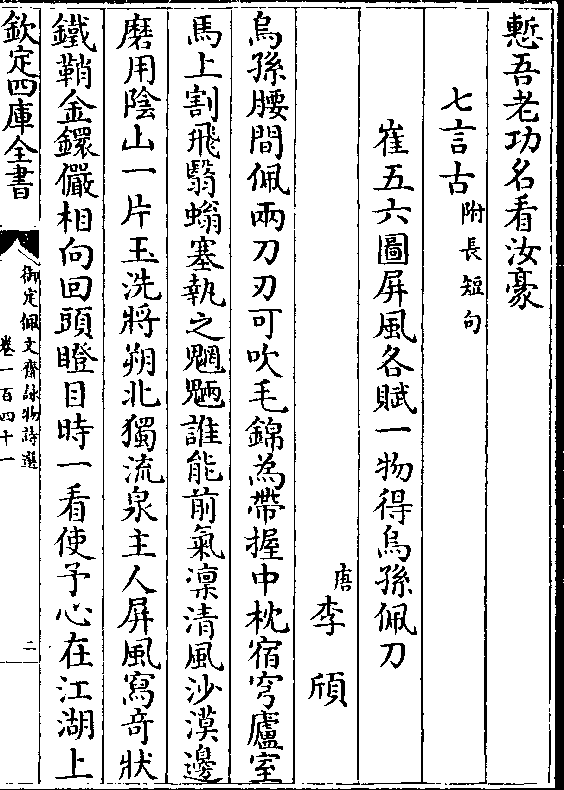 慙吾老功名看汝豪
七言古附長短句
崔五六圖屏風各賦一物得烏孫佩刀
唐李頎
烏孫腰間佩兩刀刃可吹毛錦為帶握中枕宿穹廬室
馬上割飛翳螉塞執之魍魎誰能前氣凜清風沙漠邊
磨用陰山一片玉洗將朔北獨流泉主人屏風寫奇狀
鐵鞘金鐶儼相向回頭瞪目時一看使予心在江湖上
欽定四庫全書
御定佩文齋詠物詩選
卷一百四十一
二